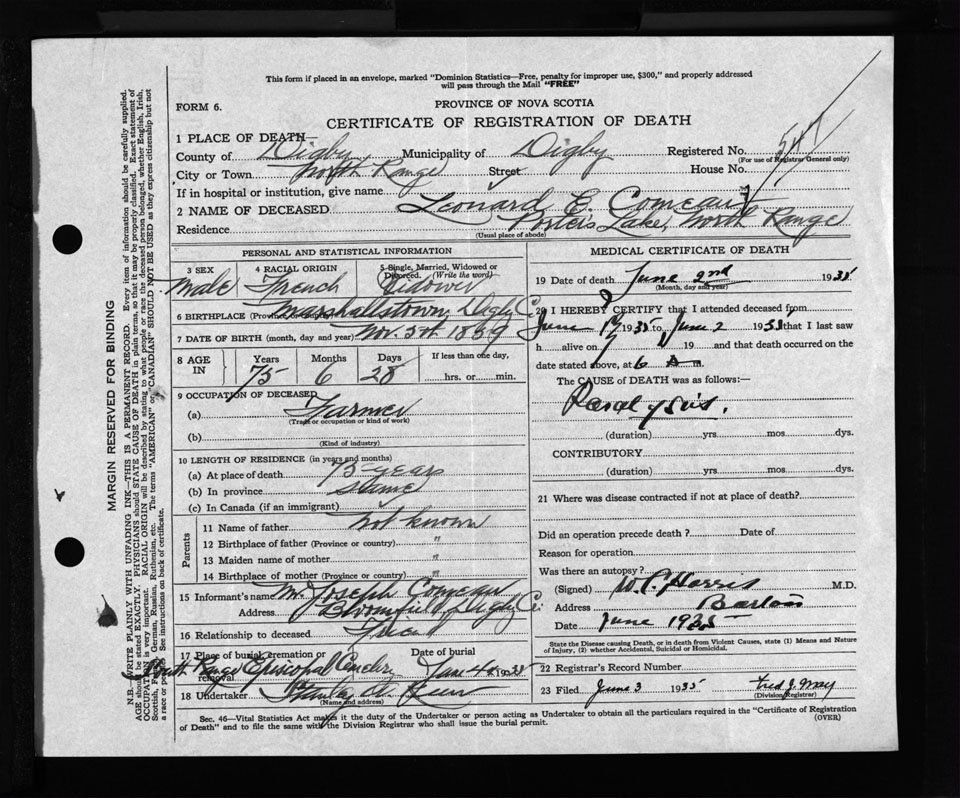 This form if placed in an envelope, marked "Dominion Statistics—Free, penalty for improper use, $300," and properly addressed
will pass through the Mail "FREE"
FORM 6.
PROVINCE OF NOVA SCOTIA
CERTIFICATE OF REGISTRATION OF DEATH
1 PLACE OF DEATH—
County of Digby Municipality of Digby Registered No.
(For use of Registrar General only)
City or Town North Range Street House No.
If in hospital or institution, give name
2 NAME OF DECEASED Leonard E. Comeau
Residence Porter's Lake, North Range
(Usual place of abode)
PERSONAL AND STATISTICAL INFORMATION
3 SEX 4 RACIAL ORIGIN 5 Single, Married, Widowed or
Divorced. (Write the word)
Male French Widower
6 BIRTHPLACE (Province or country) Marshallstown, Digby Co.
7 DATE OF BIRTH (month, day and year) Nov. 5th 1859
8 AGE
IN Years Months Days If less than one day,
75 6 28 hrs. or min.
9 OCCUPATION OF DECEASED
(a) Farmer
(Trade or occupation or kind of work)
(b)
(Kind of industry)
10 LENGTH OF RESIDENCE (in years and months)
(a) At place of death 75 years
(b) In province same
(c) In Canada (if an immigrant)
Parents
11 Name of father not known
12 Birthplace of father (Province or country) "
13 Maiden name of mother "
14 Birthplace of mother (Province or country) "
15 Informant's name Mr. Joseph Comeau
Address Bloomfield Digby Co.
16 Relationship to deceased Friend
17 Place of burial, cremation or
removal Date of burial
North Range Episcopal Cemetr. June 4th 1935
18 Undertaker Stanley A.
(Name and address)
MEDICAL CERTIFICATE OF DEATH
19 Date of death June 2nd 1935
(Month, day and year)
20 I HEREBY CERTIFY that I attended deceased from
June 1 1935 to June 2 1935 that I last saw
h alive on 19 and that death occurred on the
date stated above, at 6 A m.
The CAUSE OF DEATH was as follows:
Paralysis.
(duration) yrs. mos. dys.
CONTRIBUTORY
(duration) yrs. mos. dys.
21 Where was disease contracted if not at place of death?
Did an operation precede death? Date of
Reason for operation
Was there an autopsy?
(Signed) W. P. Harris M.D.
Address Barton
Date June 1935
State the Disease causing Death, or in death from Violent Causes, state (1) Means and Nature
of Injury, (2) whether Accidental, Suicidal or Homicidal.
22 Registrar's Record Number
23 Filed June 3 1935 Fred J. May
(Division Registrar)
Sec. 46—Vital Statistics Act makes it the duty of the Undertaker or person acting as Undertaker to obtain all the particulars required in the "Certificate of Registration
of Death" and to file the same with the Division Registrar who shall issue the burial permit. (OVER)
MARGIN RESERVED FOR BINDING
N.B. WRITE PLAINLY WITH UNFADING INK—THIS IS A PERMANENT RECORD. Every item of information should be carefully supplied.
AGE should be stated EXACTLY. PHYSICIANS should STATE CAUSE OF DEATH in plain terms, so that it may be properly classified. Exact statement of
OCCUPATION is very important. RACIAL ORIGIN will be described by stating to what people or race the deceased person belonged, whether English, Irish,
Scottish, French, German, Russian, Ruthenian, etc. The terms "AMERICAN" or "CANADIAN" SHOULD NOT BE USED as they express citizenship but not
a race or people. See instructions on back of certificate.